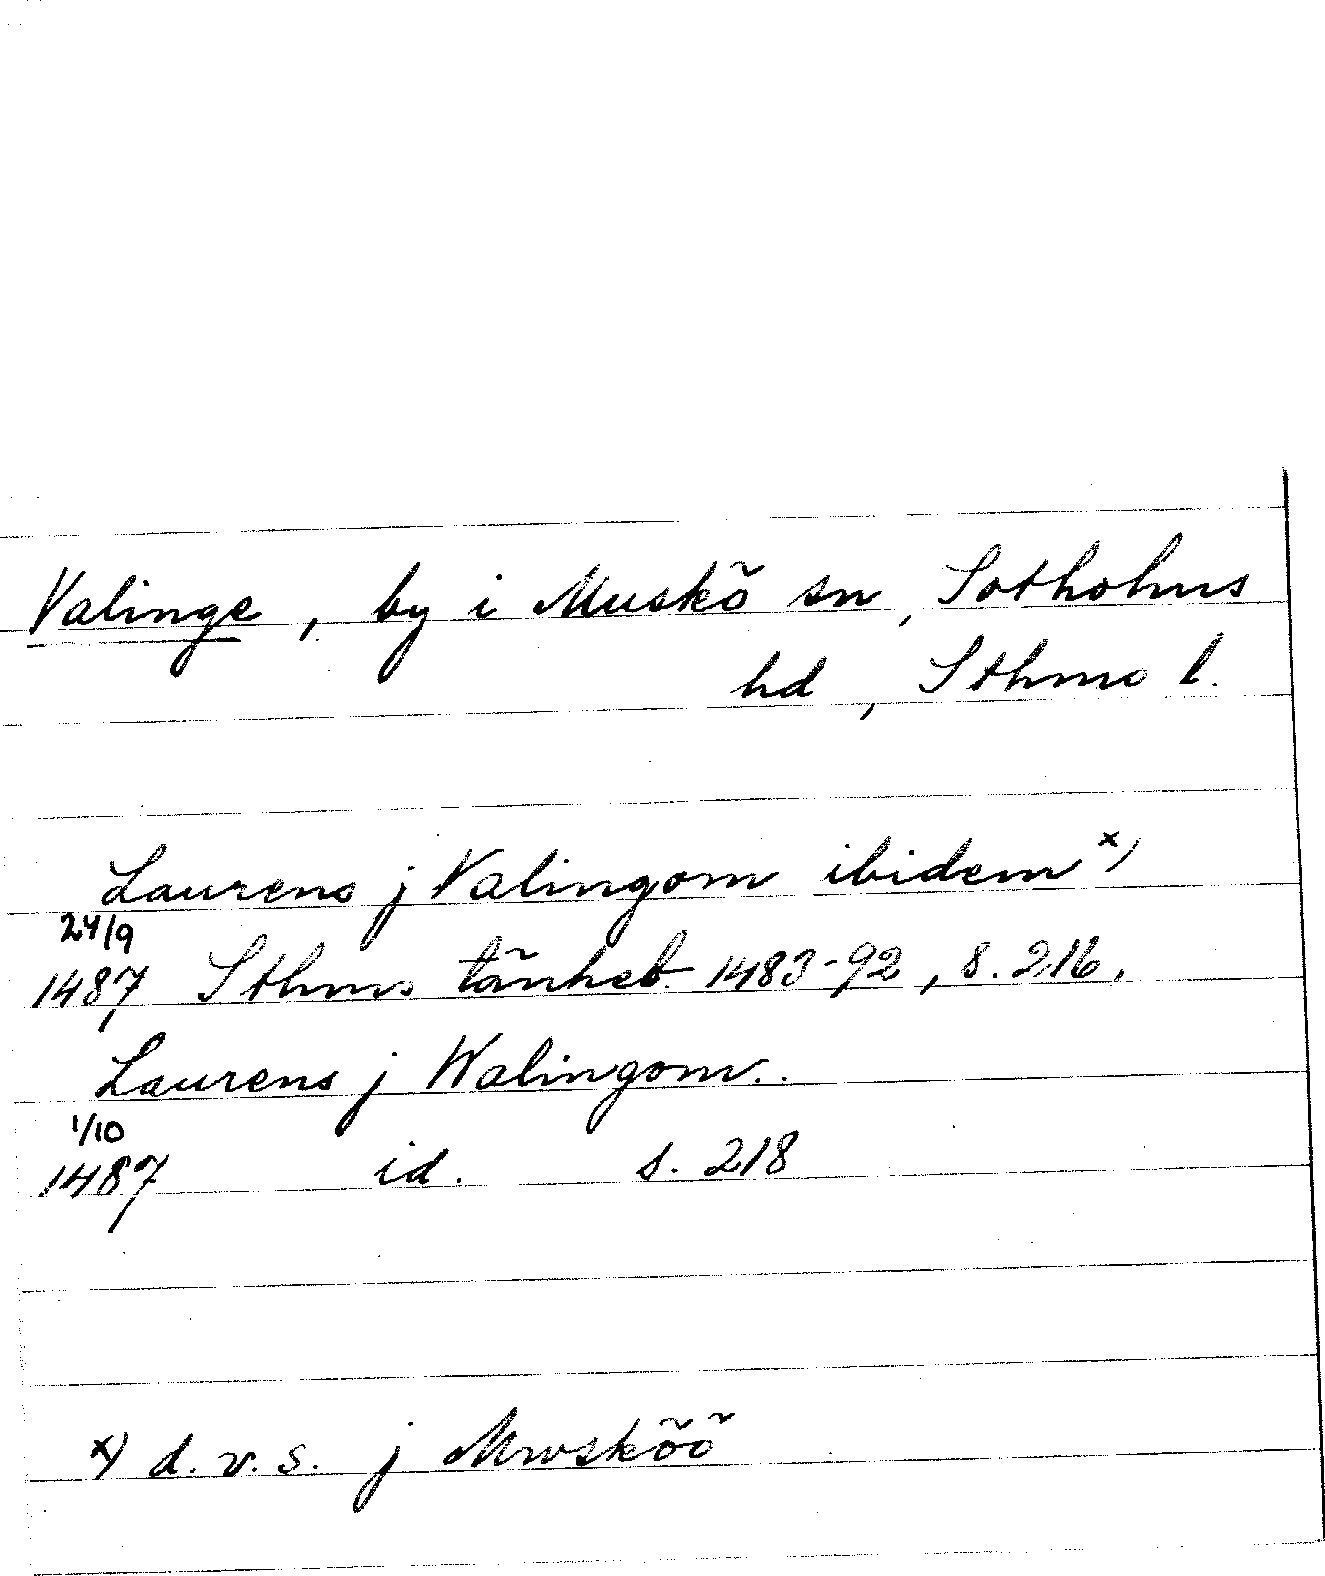 Valinge, by i Muskö sn, Sotholms
hd, Sthms l.
Laurens j Valingom ibidem x)
24/9
1487 Sthms tänkeb. 1483-92, s. 216.
Laurens j Walingom..
1/10
1487 id. s. 218
x) d.v.s. j Mwsköö